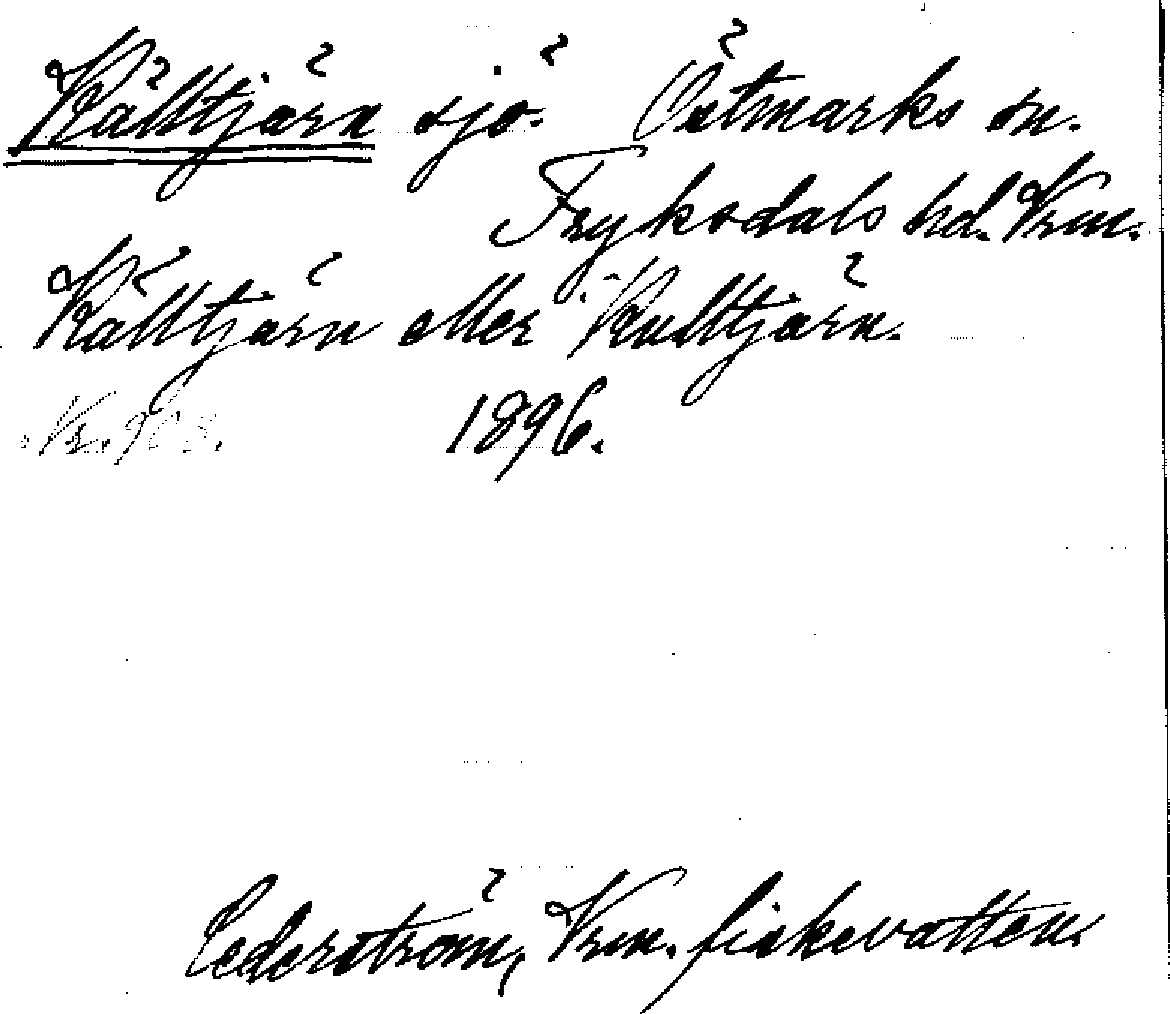 Källtjärn sjö. Östmarks sn.
Fryksdals hd. Vrm.
Källtjärn eller Kulltjärn.
Nr. 903. 1896.
Cederström, Vrm. fiskevatten.